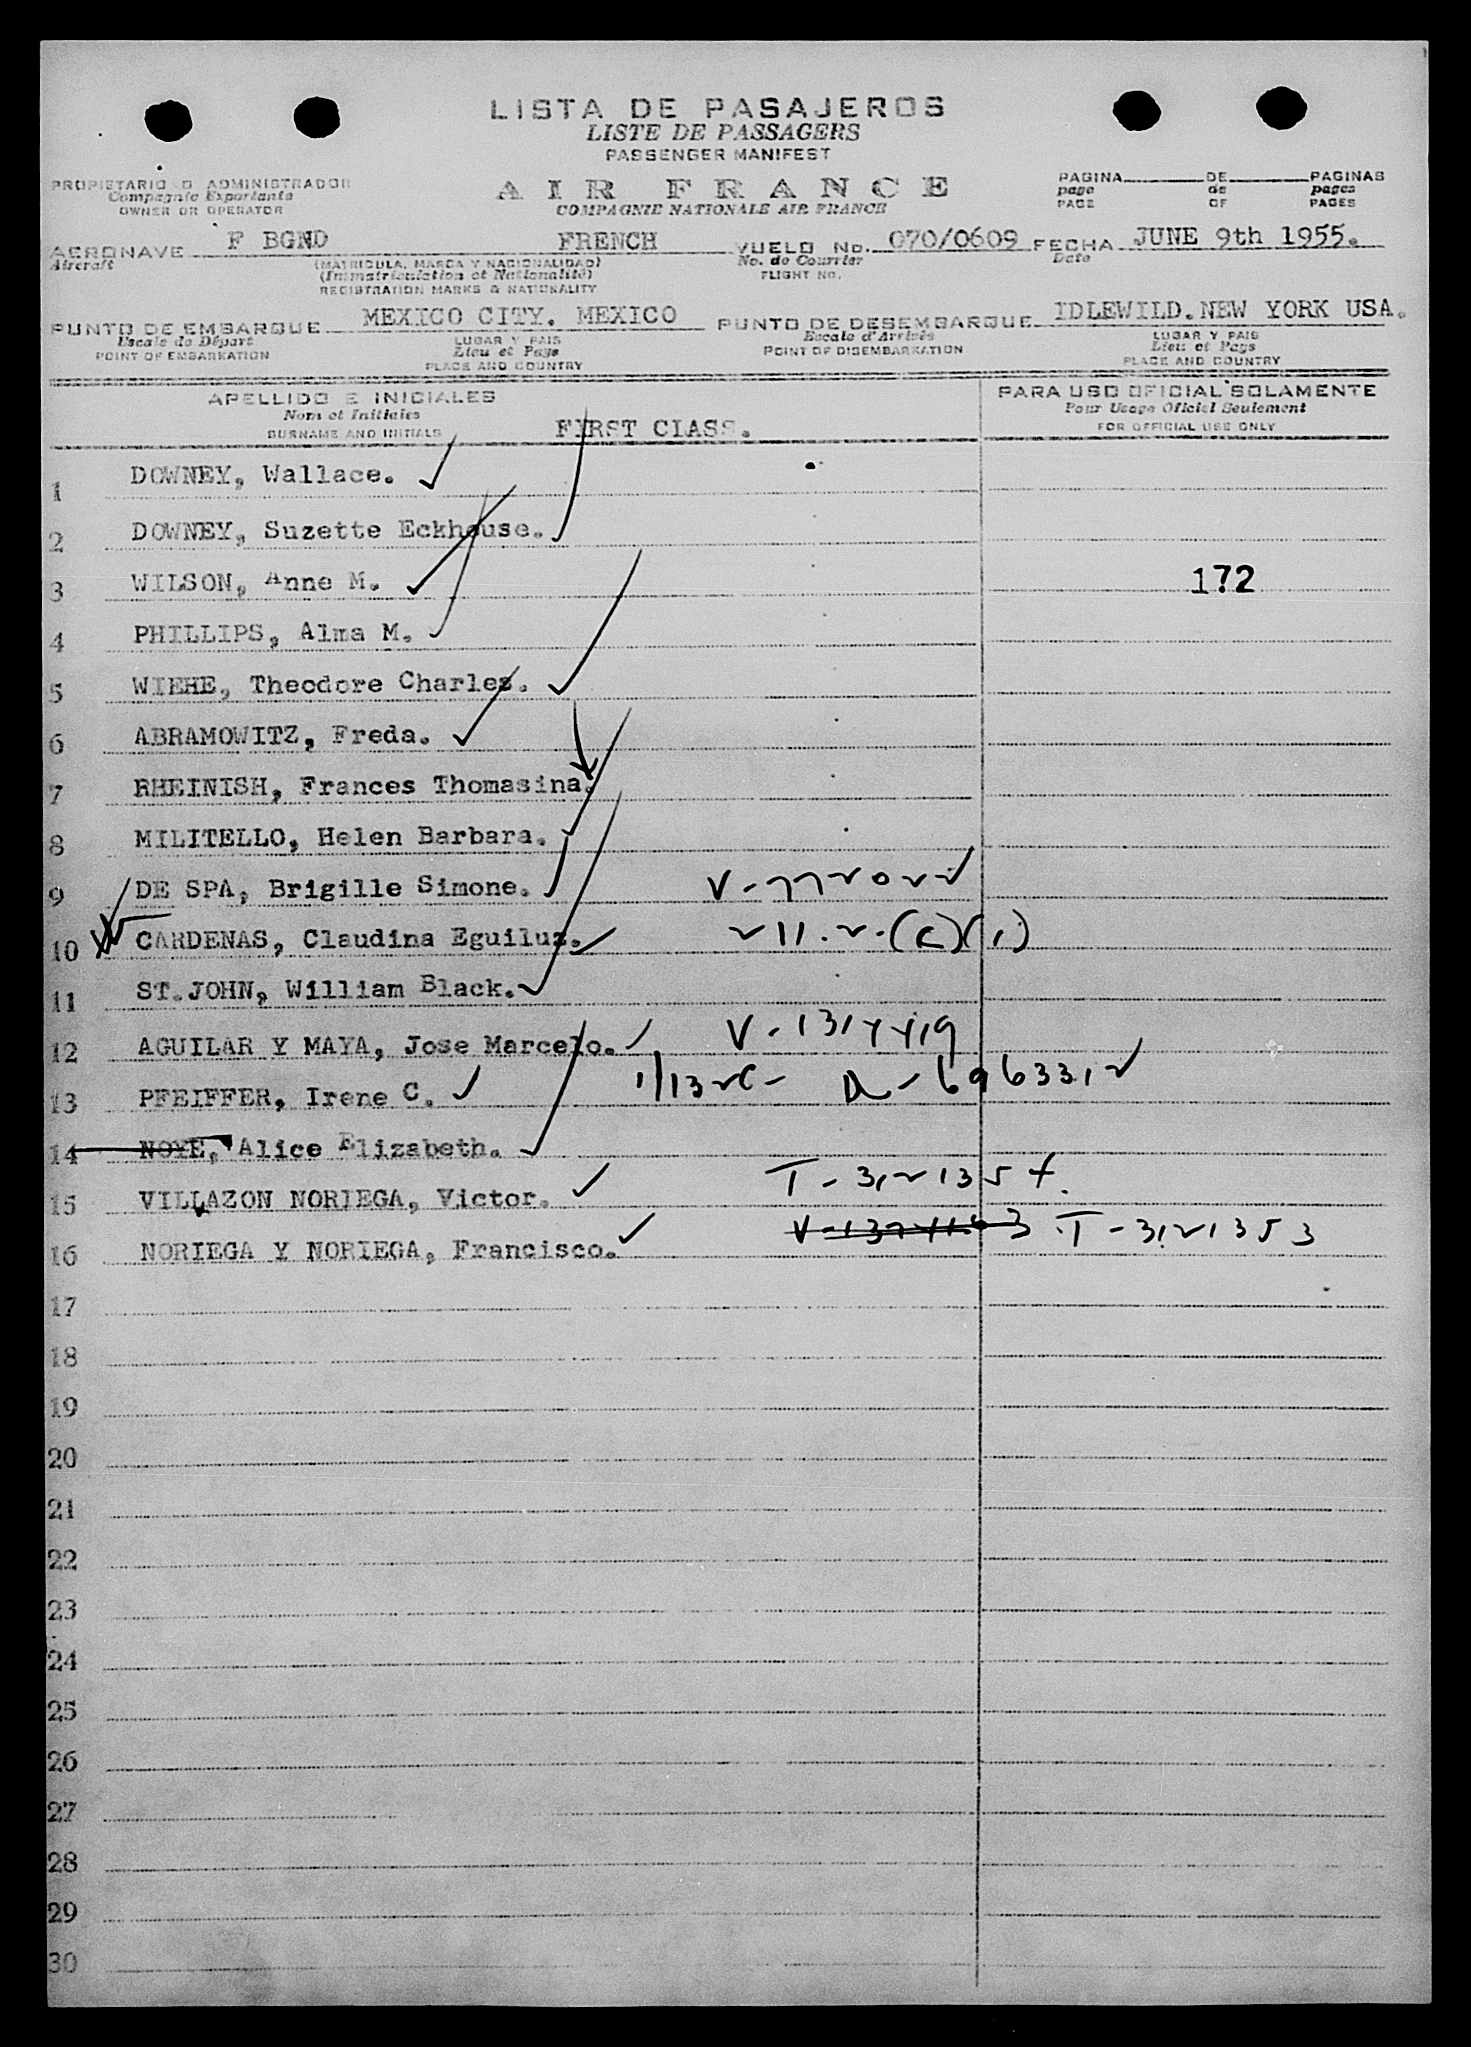 LISTA DE PASAJEROS
LISTE DE PASSAGERS
PASSENGER MANIFEST
PROPIETARIO O ADMINISTRADOR
Compagnie Exportante
OWNER OR OPERATOR
AIR FRANCE
COMPAGNIE NATIONALE AIR FRANCE
PAGINA DE PAGINAS
page de pages
PAGE OF PAGES
AERONAVE F BGND FRENCH VUELO No. 070/0609 FECHA JUNE 9th 1955.
Aircraft (MATRICULA, MARCA Y NACIONALIDAD) No. de Courrier Date
(Immatriculation et Nationalité) FLIGHT NO.
REGISTRATION MARKS & NATIONALITY
PUNTO DE EMBARQUE MEXICO CITY. MEXICO PUNTO DE DESEMBARQUE IDLEWILD.NEW YORK USA.
Escale de Départ LUGAR Y PAIS Escale d'Arrivée LUGAR Y PAIS
POINT OF EMBARKATION Lieu et Pays POINT OF DISEMBARKATION Lieu et Pays
PLACE AND COUNTRY PLACE AND COUNTRY
APELLIDO E INICIALES PARA USO OFICIAL SOLAMENTE
Nom et Initiales Pour Usage Officiel Seulement
SURNAME AND INITIALS FIRST CLASS. FOR OFFICIAL USE ONLY
1 DOWNEY, Wallace.
2 DOWNEY, Suzette Eckhouse.
3 WILSON, Anne M. 172
4 PHILLIPS, Alma M.
5 WIEHE, Theodore Charles.
6 ABRAMOWITZ, Freda.
7 RHEINISH, Frances Thomasina.
8 MILITELLO, Helen Barbara.
9 DE SPA, Brigille Simone. V-772022
10 CARDENAS, Claudina Eguiluz. 211.2.(c)(1)
11 ST.JOHN, William Black.
12 AGUILAR Y MAYA, Jose Marcelo.
13 PFEIFFER, Irene C.
14 NOYE, Alice Elizabeth.
15 VILLAZON NORIEGA, Victor. T-3121354.
16 NORIEGA Y NORIEGA, Francisco. T-3121353
17
18
19
20
21
22
23
24
25
26
27
28
29
30